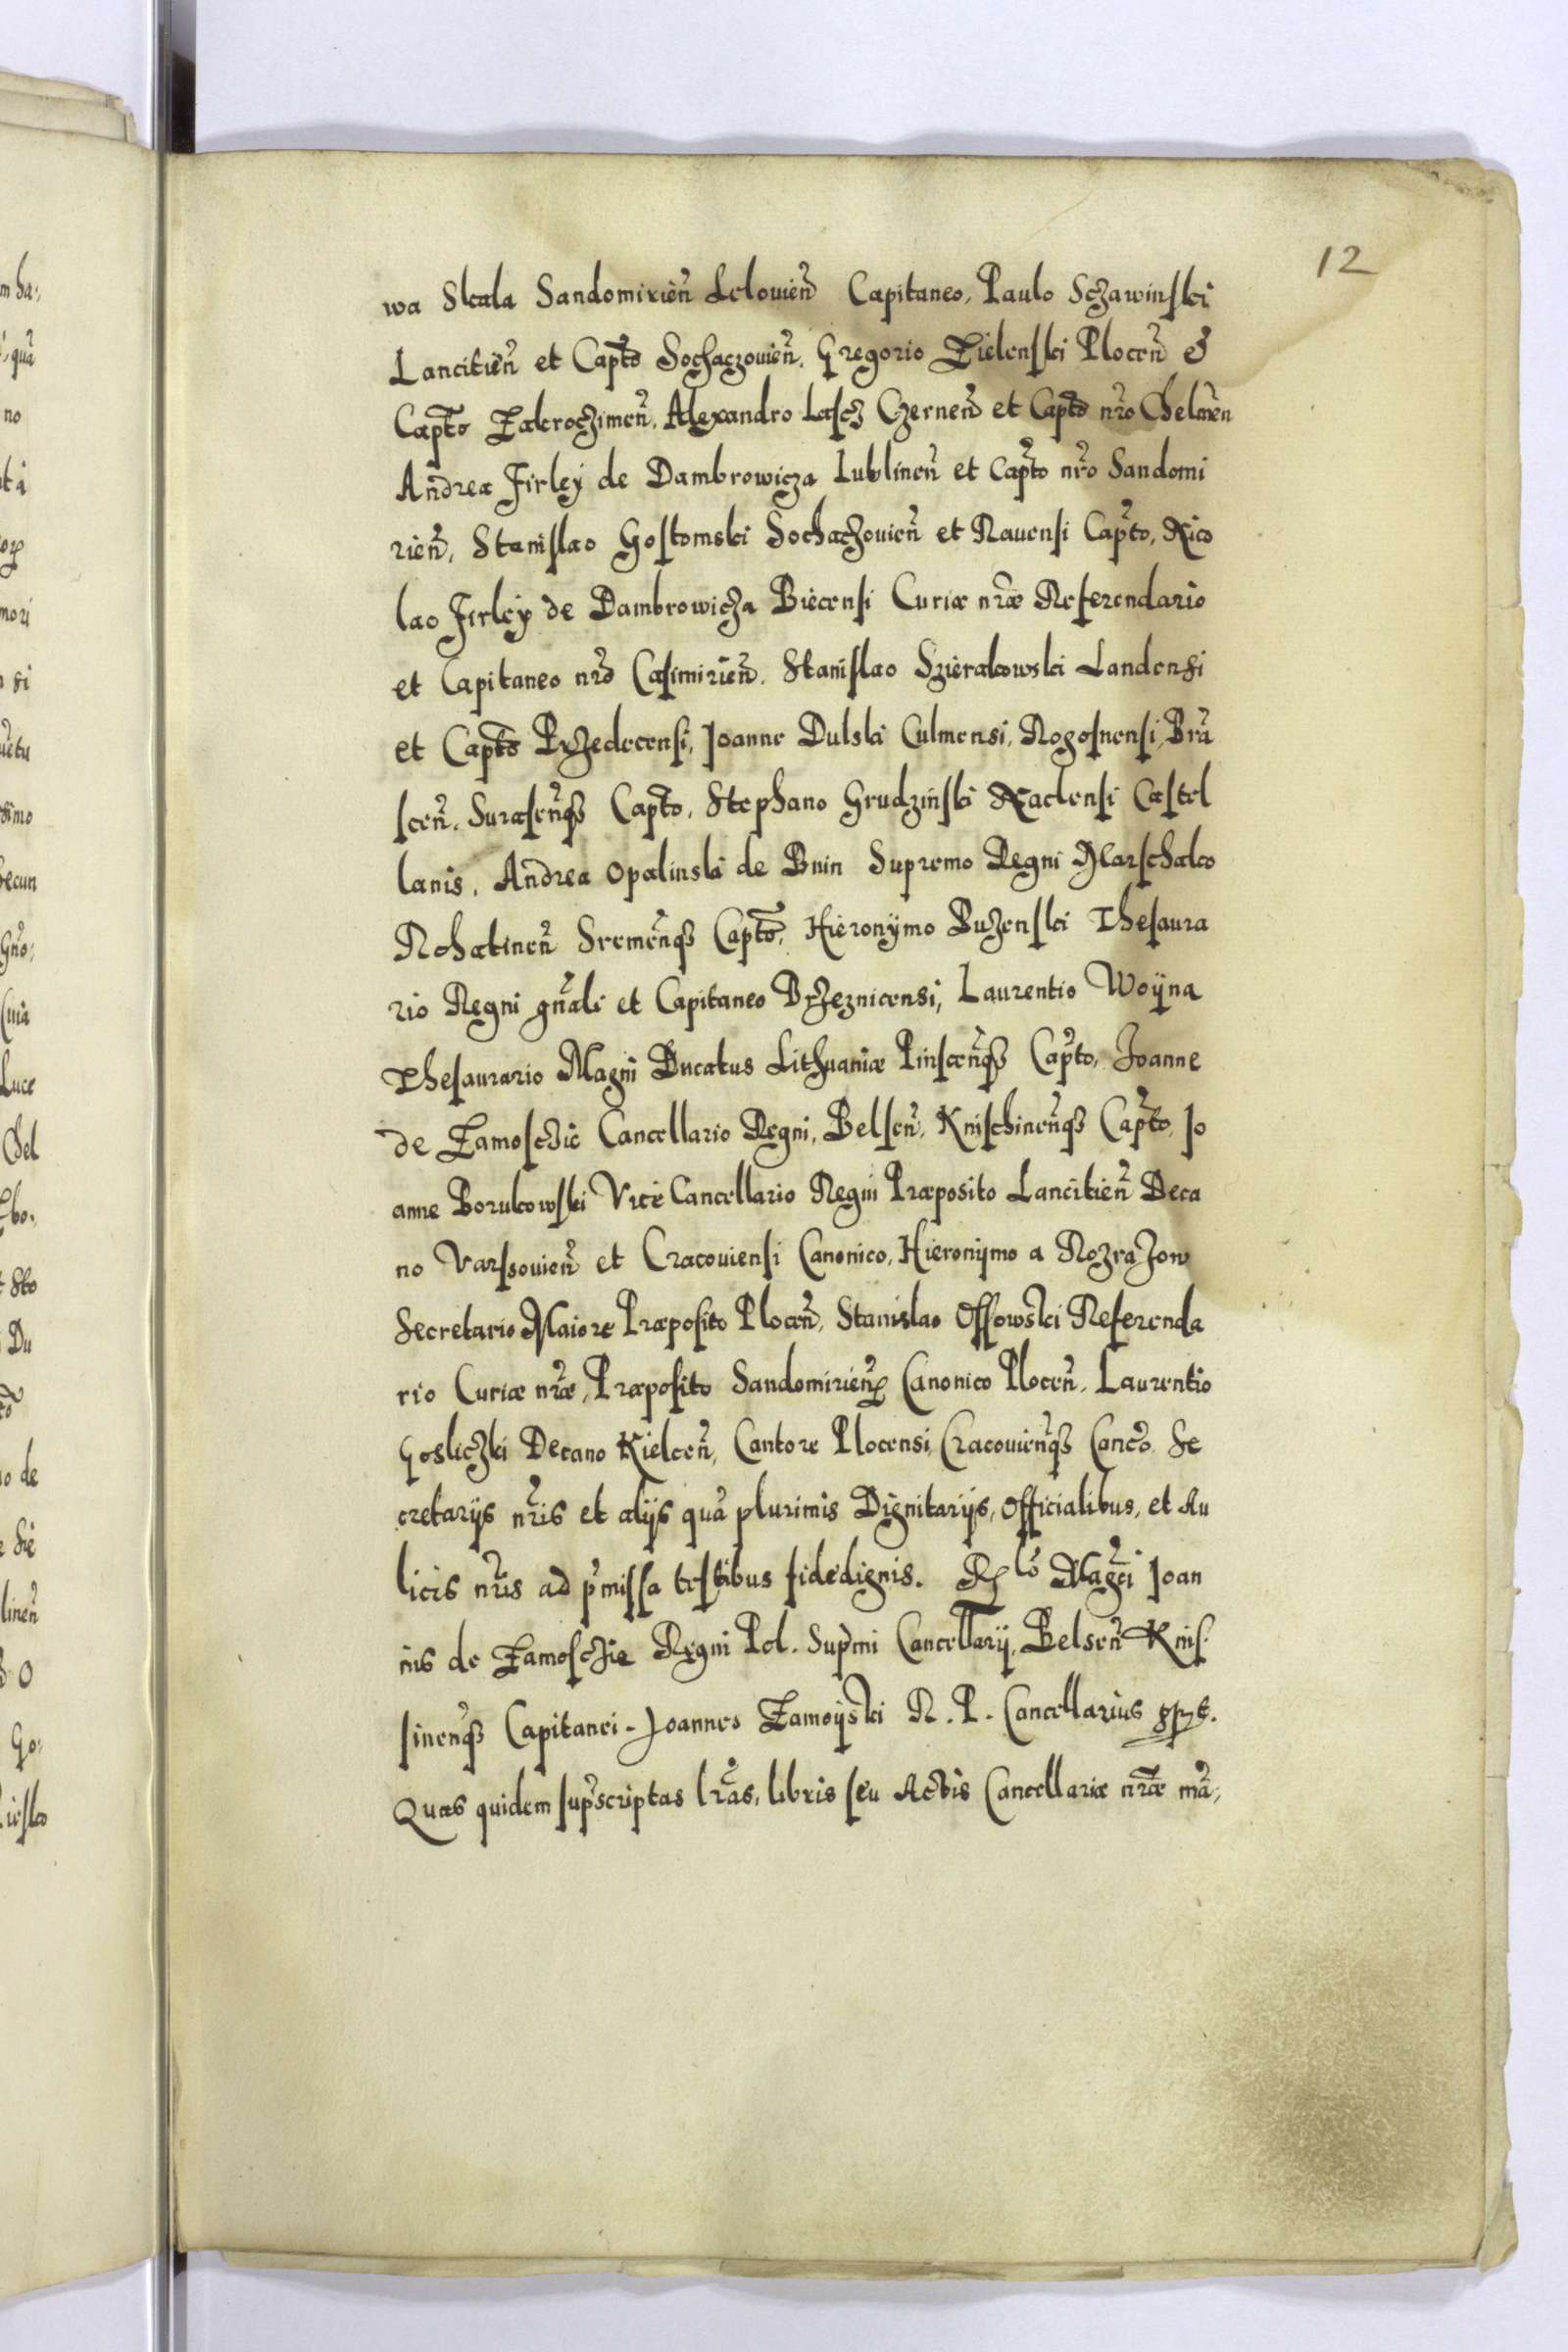 12
wa Skala Sandomirien̄ Lelouien̄ Capitaneo, Paulo Sczawinski
Lancitien̄ et Captō Sochaczouien̄, Gregorio Zielenski Plocen̄ &
Captō Zakroczimen̄, Alexandro Lascz Czernen̄ et Captō nr̄o Chelmēn
Andrea Firley de Dambrowicza Lublinen̄ et Captō nr̄o Sandomi
rien̄, Stanislao Gostomski Sochaczouien̄ et Rauensi Captō, Nico
lao Firley de Dambrowicza Biecensi Curiæ nr̄æ Referendario
et Capitaneo nr̄o Casimirien̄. Stanislao Szierakowski Landensi
et Captō Przedecensi, Joanne Dulski Culmensi, Rogosnensi, Brā
scen̄. Surasen̄qȝ Captō, Stephano Grudzinski Naclensi Castel
lanis, Andrea Opalinski de Bnin Supremo Regni Marschalco
Rohatinen̄ Sremen̄qȝ Captō, Hieronymo Buzenski Thesaura
rio Regni gn̄ali et Capitaneo Brzeznicensi, Laurentio Woÿna
Thesaurario Magni Ducatus Lithuaniæ Pinscen̄qȝ Captō, Joanne
de Zamoscie Cancellario Regni, Belsen̄, Knischinen̄qȝ Captō, Jo
anne Borukowski Vice Cancellario Regni Præposito Lancitien̄ Deca
no Varssouien̄ et Cracouiensi Canonico, Hieronÿmo a Rozrazow
Secretario Maiore Præposito Plocen̄, Stanislao Ossowski Referenda
rio Curiæ nr̄æ, Præposito Sandomirien̄ Canonico Plocen̄, Laurentio
Gosliczki Decano Kielcen̄, Cantore Plocensi, Cracouien̄qȝ Cancō. Se
cretarijs nr̄is et alijs quā plurimis Dignitarijs, Officialibus, et Au
licis nr̄is ad p̄missa testibus fidedignis. Rlō Magci Joan
nis de Zamosczie Regni Pol. Sup̄mi Cancellarij, Belsen̄ Knis
sinen̄qȝ Capitanei - Joannes Zamoÿski R. P. Cancellarius sst.
Quas quidem sup̄scriptas lr̄as, libris seu Actis Cancellariæ nr̄æ mā,